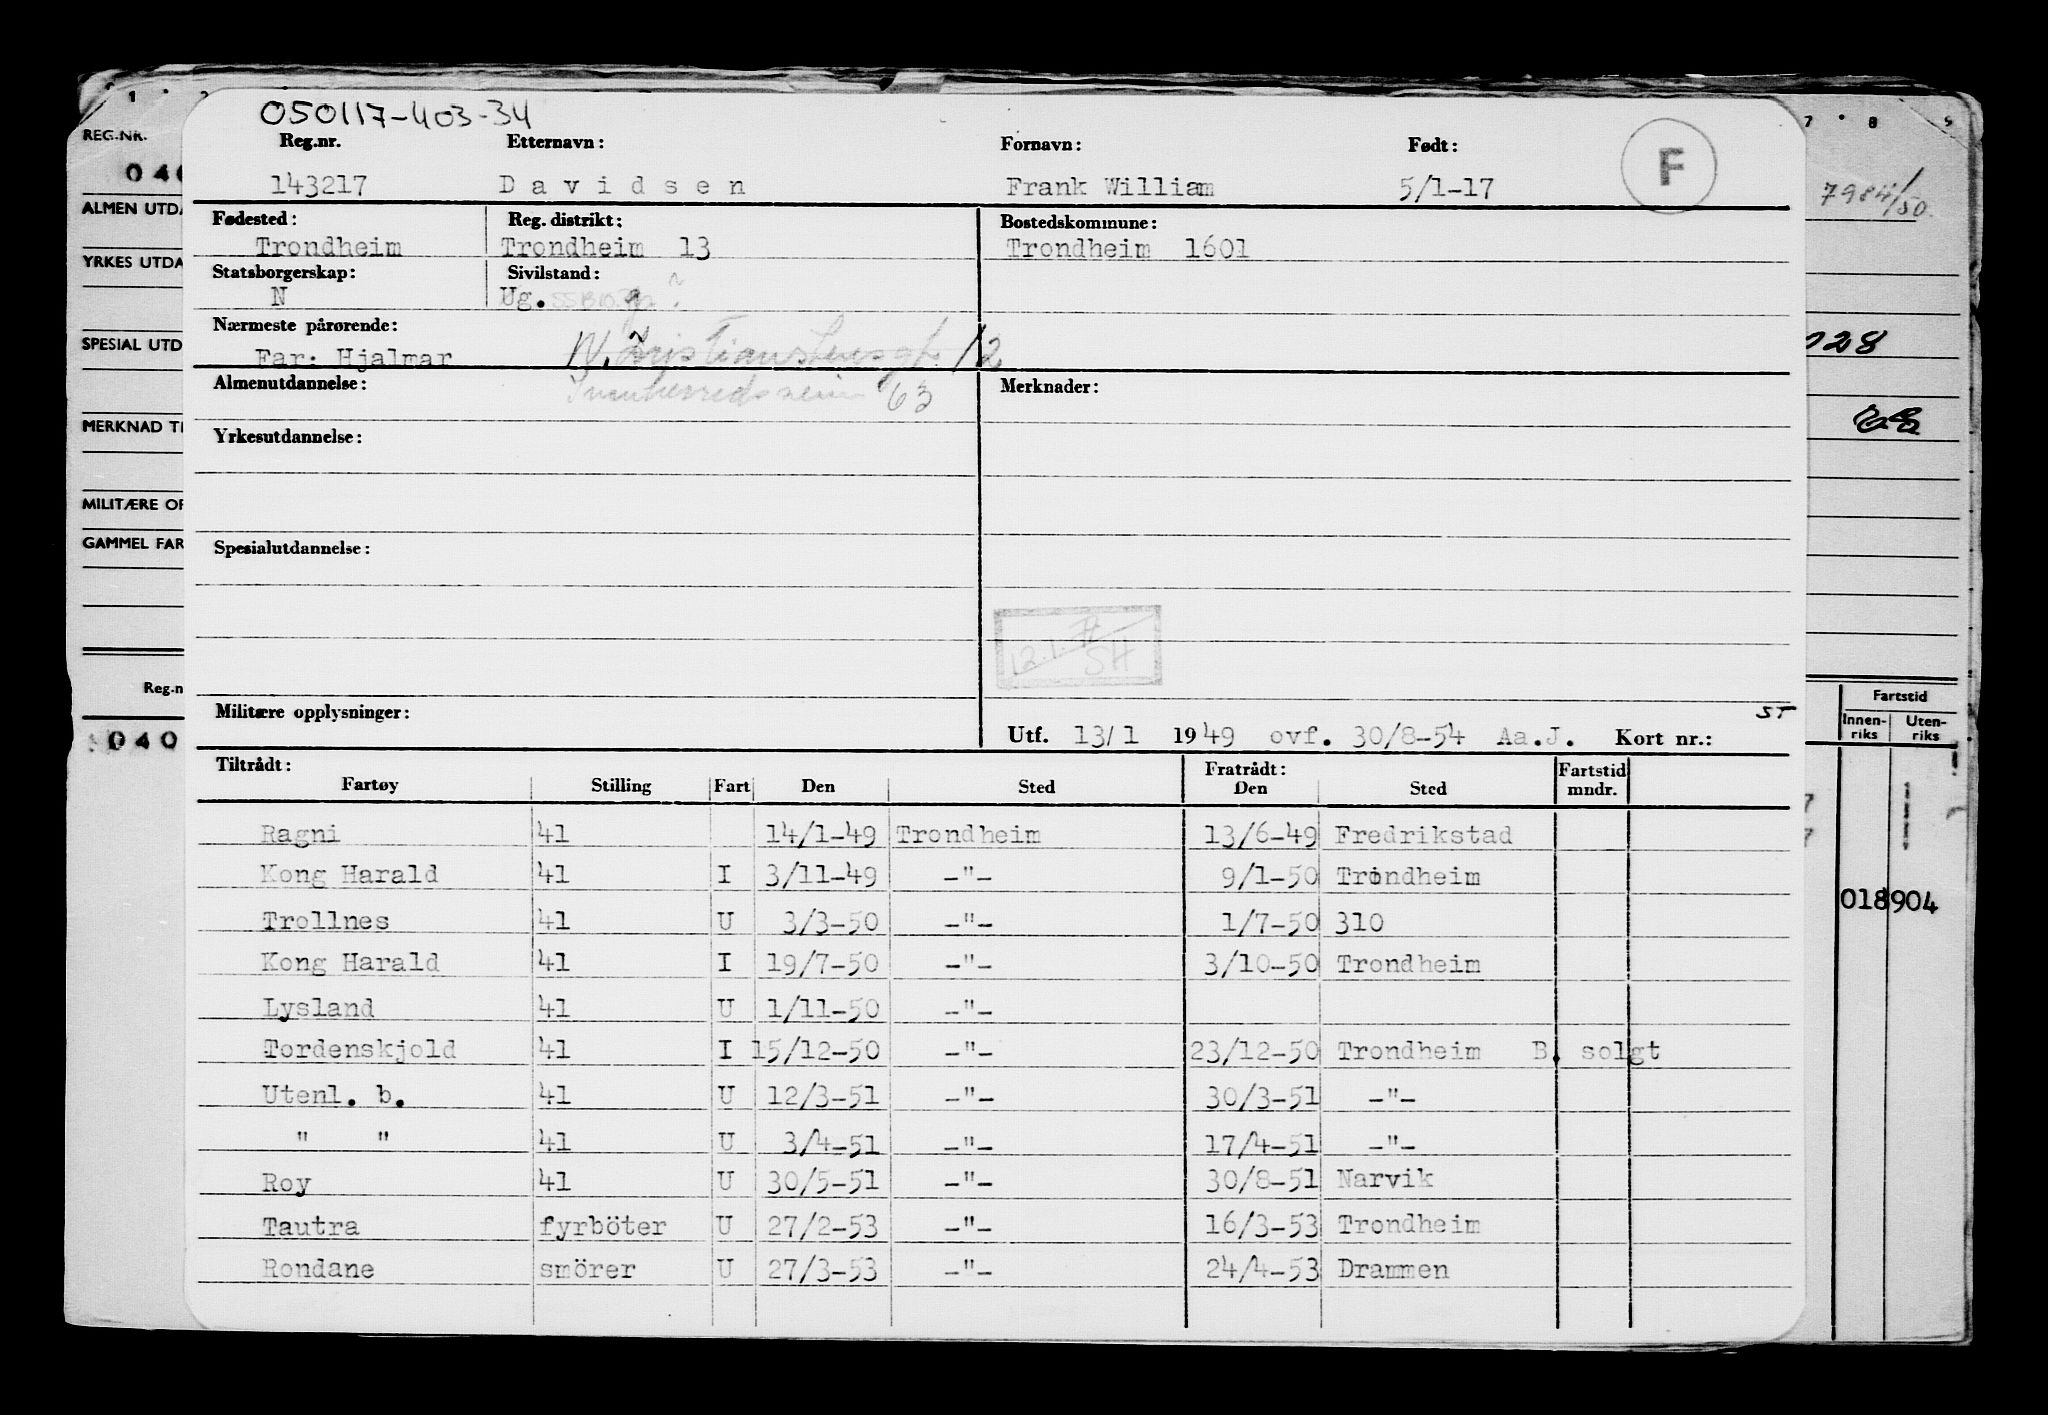 050117-403-34
Reg.nr. Etternavn: Fornavn: Født: F
143217 Davidsen Frank William 5/1-17
Fødested: Reg. distrikt: Bostedskommune:
Trondheim Trondheim 13 Trondheim 1601
Statsborgerskap: Sivilstand:
N Ug. ?
Nærmeste pårørende:
Far: Hjalmar N. 12
Almenutdannelse: 63 Merknader:
Yrkesutdannelse:
Spesialutdannelse:
12.1. SH
Militære opplysninger: ST
Utf. 13/1 1949 ovf. 30/8-54 Aa.J. Kort nr.:
Tiltrådt: Fratrådt: Fartstid
Fartøy Stilling Fart Den Sted Den Sted mndr.
Ragni 41 14/1-49 Trondheim 13/6-49 Fredrikstad
Kong Harald 41 I 3/11-49 -"- 9/1-50 Trondheim
Trollnes 41 U 3/3-50 -"- 1/7-50 310
Kong Harald 41 I 19/7-50 -"- 3/10-50 Trondheim
Lysland 41 U 1/11-50 -"-
Tordenskjold 41 I 15/12-50 -"- 23/12-50 Trondheim B. solgt
Utenl. b. 41 U 12/3-51 -"- 30/3-51 -"-
" " 41 U 3/4-51 -"- 17/4-51 -"-
Roy 41 U 30/5-51 -"- 30/8-51 Narvik
Tautra fyrböter U 27/2-53 -"- 16/3-53 Trondheim
Rondane smörer U 27/3-53 -"- 24/4-53 Drammen
1 2
REG.NR.
040
ALMEN UTDA
YRKES UTDA
SPESIAL UTD
MERKNAD TI
MILITÆRE OP
GAMMEL FAR
Reg.n
040
7 8 9
7984/50
028
Fartstid
Innen- Uten-
riks riks
018904